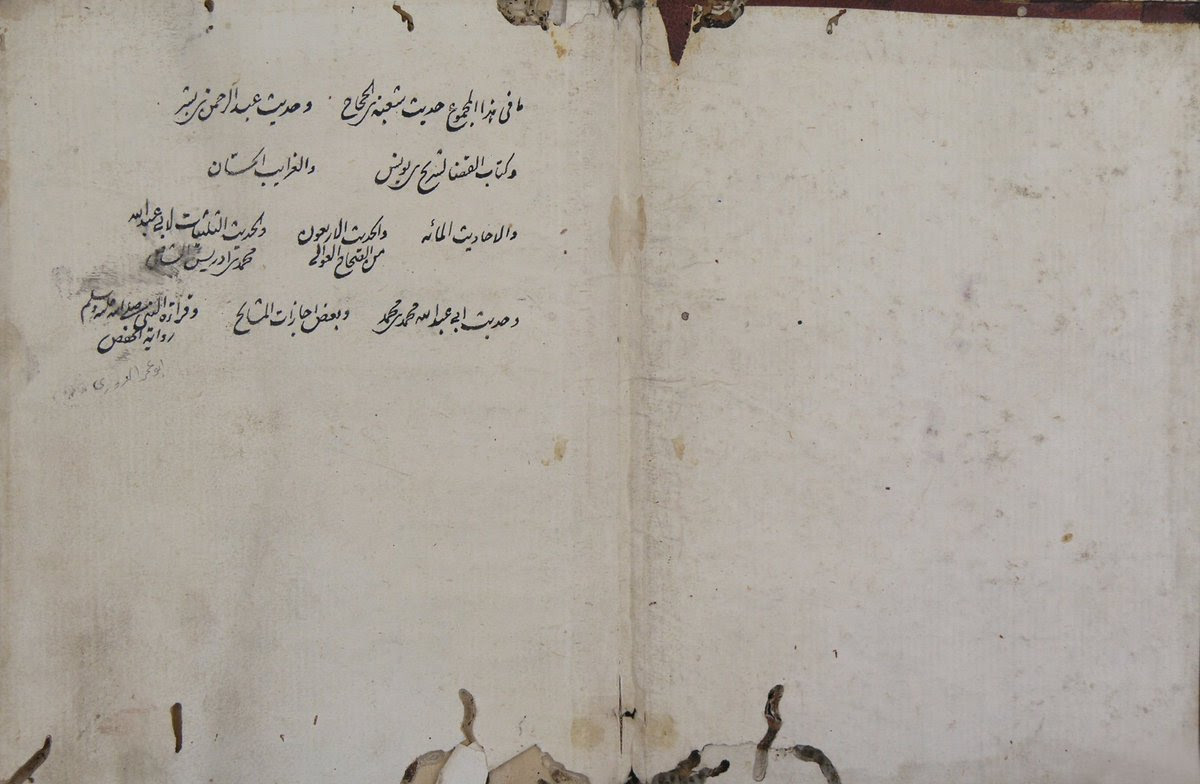 ما في هذا المجموع حديث شعبة بن الحجاج وحديث عبد الرحمن بن بشر
وكتاب القضا لشريح بن يونس والغرايب الحسان
والاحاديث المائه والحديث الاربعون والحديث الثلثيات لابي عبد الله
من الصحاح العوالي محمد بن ادريس الشافعي
وحديث ابي عبد الله محمد بن محمد وبعض اجازات المشايخ وقراءة النبي صلى الله عليه وسلم
رواية الحفص
ابو عمر الدوري